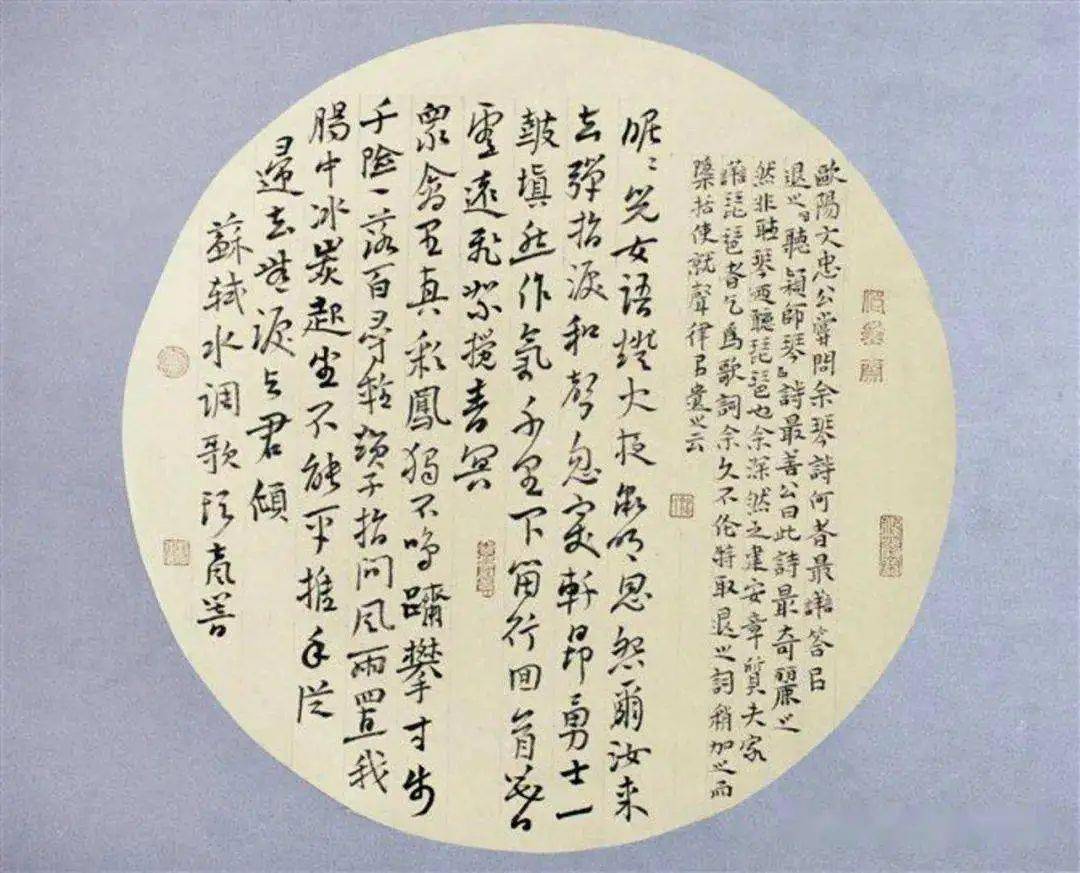 歐陽文忠公嘗問余琴詩何者最譱答㠯
退之聽穎師琴詩最善公曰此詩最奇麗之
然非聽琴迺聽琵琶也余深然之建安章質夫家
譱琵琶者乞爲歌詞余久不作特取退之詞稍加之而
檃括使就聲律㠯遺之云
昵昵兒女語燈火夜微明恩怨爾汝來
去彈指淚和聲忽變軒昂勇士一
鼓填然作氣千里不留行回首暮
雲遠飛絮攪青冥
眾禽里真彩鳳獨不鳴躋攀寸步
千險一落百尋輕煩子指間風雨置我
腸中冰炭起坐不能平推手從
歸去無淚與君傾
蘇軾水调歌頭